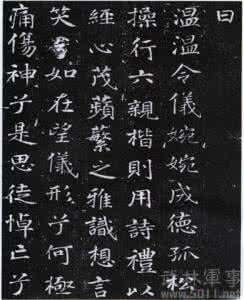 曰
温温令儀婉婉成德孤松
操行六親楷則用詩禮以
經心茂蘋蘩之雅識想言
笑如在望儀形兮何極
痛傷神兮是思徒悼亡兮
武林軍事
www.5011.net